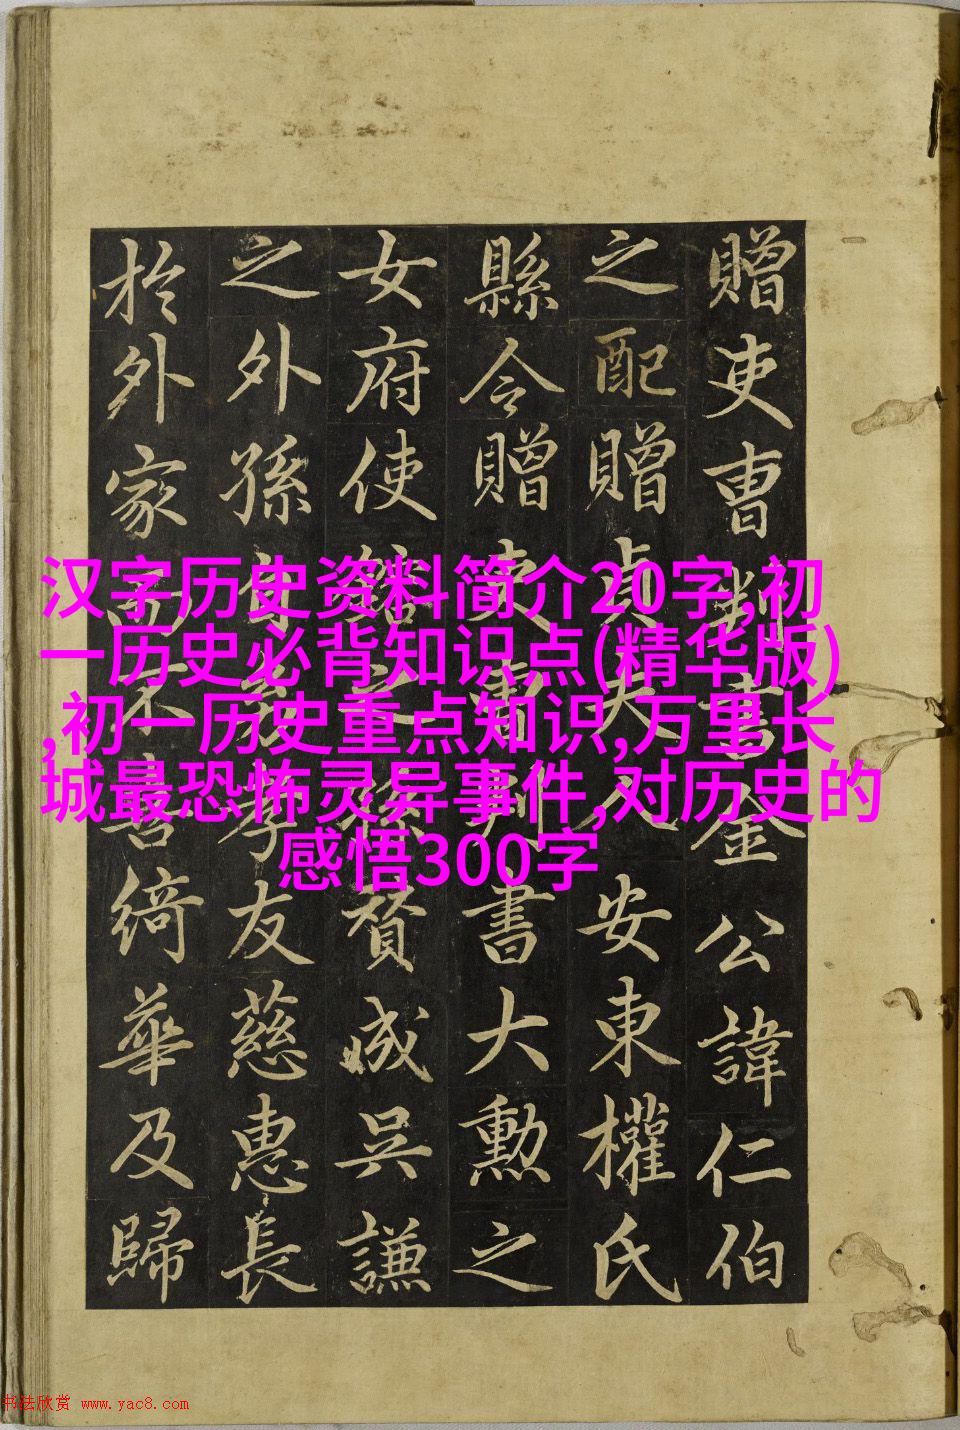 贈吏曹判書金公諱仁伯
之配贈貞夫人安東權氏
縣令贈吏曹判書大勳之
女府使之孫贊成吳謙
之外孫孝友慈惠長
於外家而不喜綺華及歸
汉字历史资料简介20字,初
一历史必背知识点(精华版)
,初一历史重点知识,万里长
城最恐怖灵异事件,对历史的
感悟300字
书法欣赏 www.yac8.com